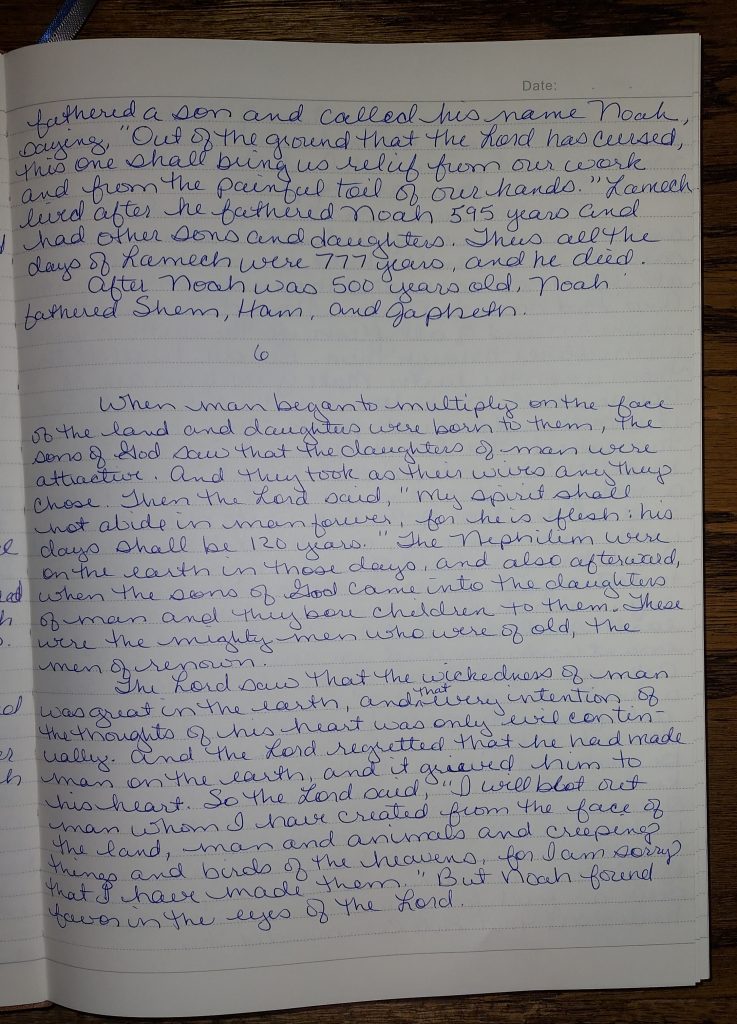 Date:
fathered a son and called his name Noah,
saying, "Out of the ground that the Lord has cursed,
this one shall bring us relief from our work
and from the painful toil of our hands." Lamech
lived after he fathered Noah 595 years and
had other sons and daughters. Thus all the
days of Lamech were 777 years, and he died.
After Noah was 500 years old, Noah
fathered Shem, Ham, and Japheth.
6
When man began to multiply on the face
of the land and daughters were born to them, the
sons of God saw that the daughters of man were
attractive. And they took as their wives any they
chose. Then the Lord said, "My spirit shall
not abide in man forever, for he is flesh: his
days shall be 120 years." The Nephilim were
on the earth in those days, and also afterward,
when the sons of God came into the daughters
of man and they bore children to them. These
were the mighty men who were of old, the
men of renown.
The Lord saw that the wickedness of man
was great in the earth, and that every intention of
the thoughts of his heart was only evil contin-
ually. And the Lord regretted that he had made
man on the earth, and it grieved him to
his heart. So the Lord said, "I will blot out
man whom I have created from the face of
the land, man and animals and creeping
things and birds of the heavens, for I am sorry
that I have made them." But Noah found
favor in the eyes of the Lord.